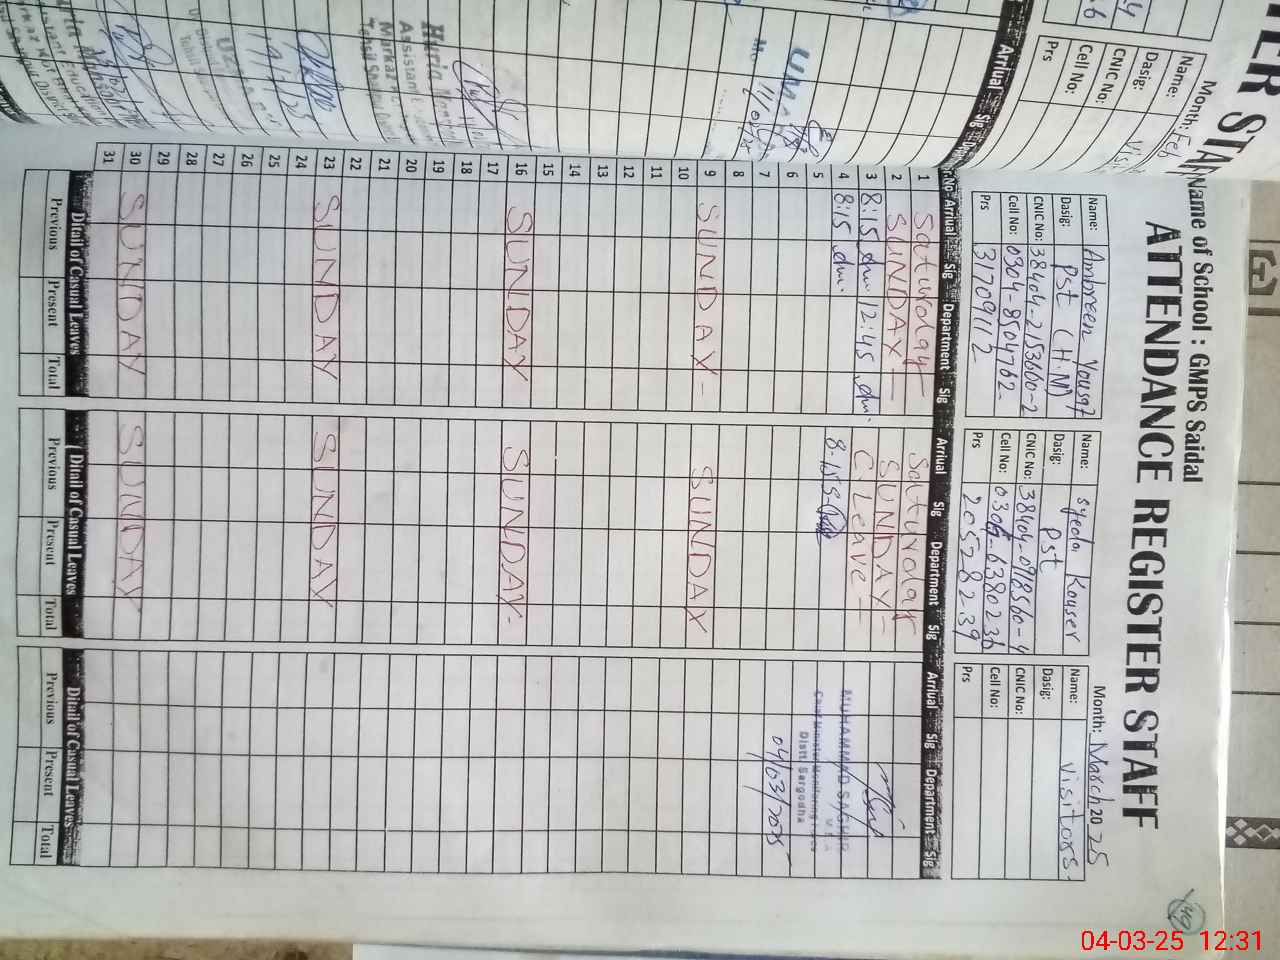 Name of School : GMPS Saidal
ATTENDANCE REGISTER STAFF
Month: March 2025
Name: Ambreen Yousaf
Dasig: PST (H.M)
CNIC No: 38404-2153660-2
Cell No: 0304-8504762
Prs 31709112
Name: syeda Kouser
Dasig: PST
CNIC No: 38404-0918560-4
Cell No: 0304-6380236
Prs 20528239
Name: visitors
Dasig:
CNIC No:
Cell No:
Prs
Arrival Sig Department Sig Arrival Sig Department Sig Arrival Sig Department Sig
1 Saturday Saturday
2 SUNDAY SUNDAY
3 8:15 12:45 C. Leave
4 8:15 8:15
5
6
7
8
9 SUNDAY SUNDAY
10
11
12
13
14
15
16 SUNDAY SUNDAY
17
18
19
20
21
22
23 SUNDAY SUNDAY
24
25
26
27
28
29
30 SUNDAY SUNDAY
31
MUHAMMAD SAGHIR
Chief Minister Monitoring Force
Distt. Sargodha
04/03/2025
Ditail of Casual Leaves Ditail of Casual Leaves Ditail of Casual Leaves
Previous Present Total Previous Present Total Previous Present Total
Month: Feb
Name:
Dasig:
CNIC No:
Cell No:
Prs
Arrival Sig
Huria
Assistant
Markaz
Tehsil
49
04-03-25 12:31